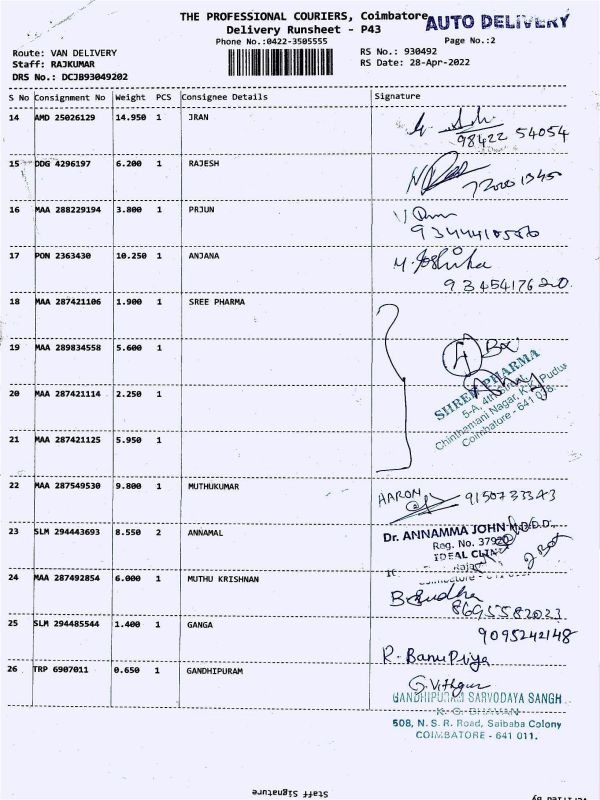 THE PROFESSIONAL COURIERS, Coimbatore
AUTO DELIVERY
Delivery Runsheet - P43
Phone No.:0422-3505555
Page No.:2
Route: VAN DELIVERY
RS No.: 930492
Staff: RAJKUMAR
RS Date: 28-Apr-2022
DRS No.: DCJB93049202
S No Consignment No Weight PCS Consignee Details Signature
14 AMD 25026129 14.950 1 JRAN
98422 54054
15 DDG 4296197 6.200 1 RAJESH
16 MAA 288229194 3.800 1 PRJUN
17 PON 2363430 10.250 1 ANJANA
M. Joshika
9345417620
18 MAA 287421106 1.900 1 SREE PHARMA
19 MAA 289834558 5.600 1
4 Box
SHREE PHARMA
20 MAA 287421114 2.250 1
Chinthamani Nagar, K.K. Pudur
Coimbatore - 641 038.
21 MAA 287421125 5.950 1
22 MAA 287549530 9.800 1 MUTHUKUMAR
AARON 9150733343
23 SLM 294443693 8.550 2 ANNAMAL
Dr. ANNAMMA JOHN
Reg. No. 37920
IDEAL CLINIC
2 Box
24 MAA 287492854 6.000 1 MUTHU KRISHNAN
B. Sudha
8695582023
25 SLM 294485544 1.400 1 GANGA
9095242148
R. BanuPriya
26 TRP 6907011 0.650 1 GANDHIPURAM
GANDHIPURAM SARVODAYA SANGH
K. G. BHAVAN
508, N. S. R. Road, Saibaba Colony
COIMBATORE - 641 011.
Staff Signature
Verified By